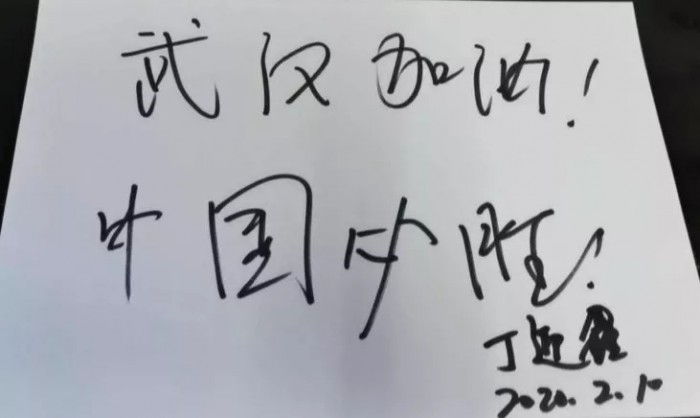 武汉加油！
中国必胜！
丁
2020.2.10